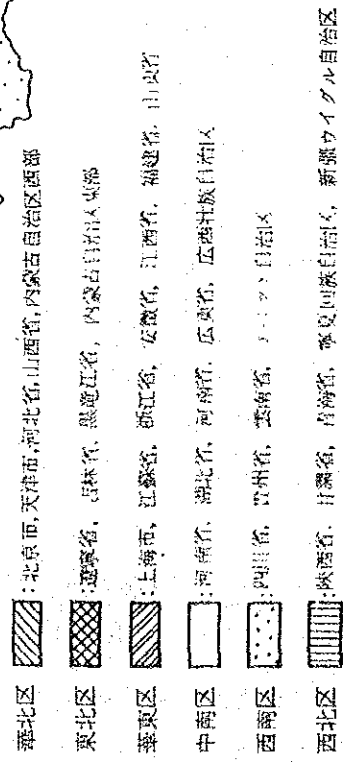 華北区 :北京市,天津市,河北省,山西省,内蒙古自治区西部
東北区 :遼寧省, 吉林省, 黒竜江省, 内蒙古自治区東部
華東区 :上海市, 江蘇省, 浙江省, 安徽省, 江西省, 福建省, 山東省
中南区 :河南省, 湖北省, 河南省, 広東省, 広西壮族自治区
西南区 :四川省, 貴州省, 雲南省, 自治区
西北区 :陝西省, 甘粛省, 青海省, 寧夏回族自治区, 新疆ウイグル自治区